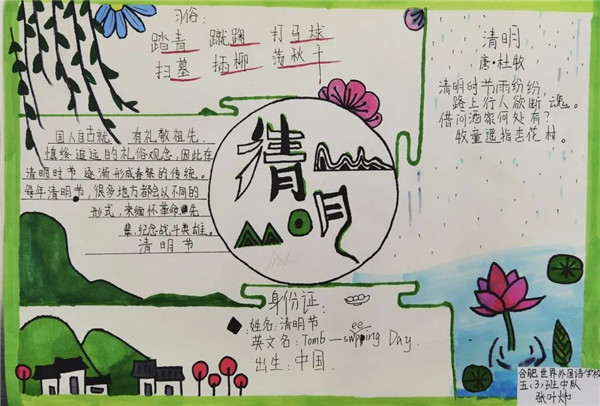 习俗:
踏青 蹴鞠 打马球
扫墓 插柳 荡秋千
清明
唐·杜牧
清明时节雨纷纷,
路上行人欲断魂。
借问酒家何处有?
牧童遥指杏花村。
国人自古就有礼敬祖先,
慎终追远的礼俗观念,因此在
清明时节逐渐形成祭祭的传统。
每年清明节,很多地方都会以不同的
形式,来缅怀革命先
辈,纪念战斗英雄。
清明节
清明
身份证:
姓名:清明节
ee
英文名:Tomb-swpping Day.
出生:中国
合肥世界外国语学校
五(3)班中队